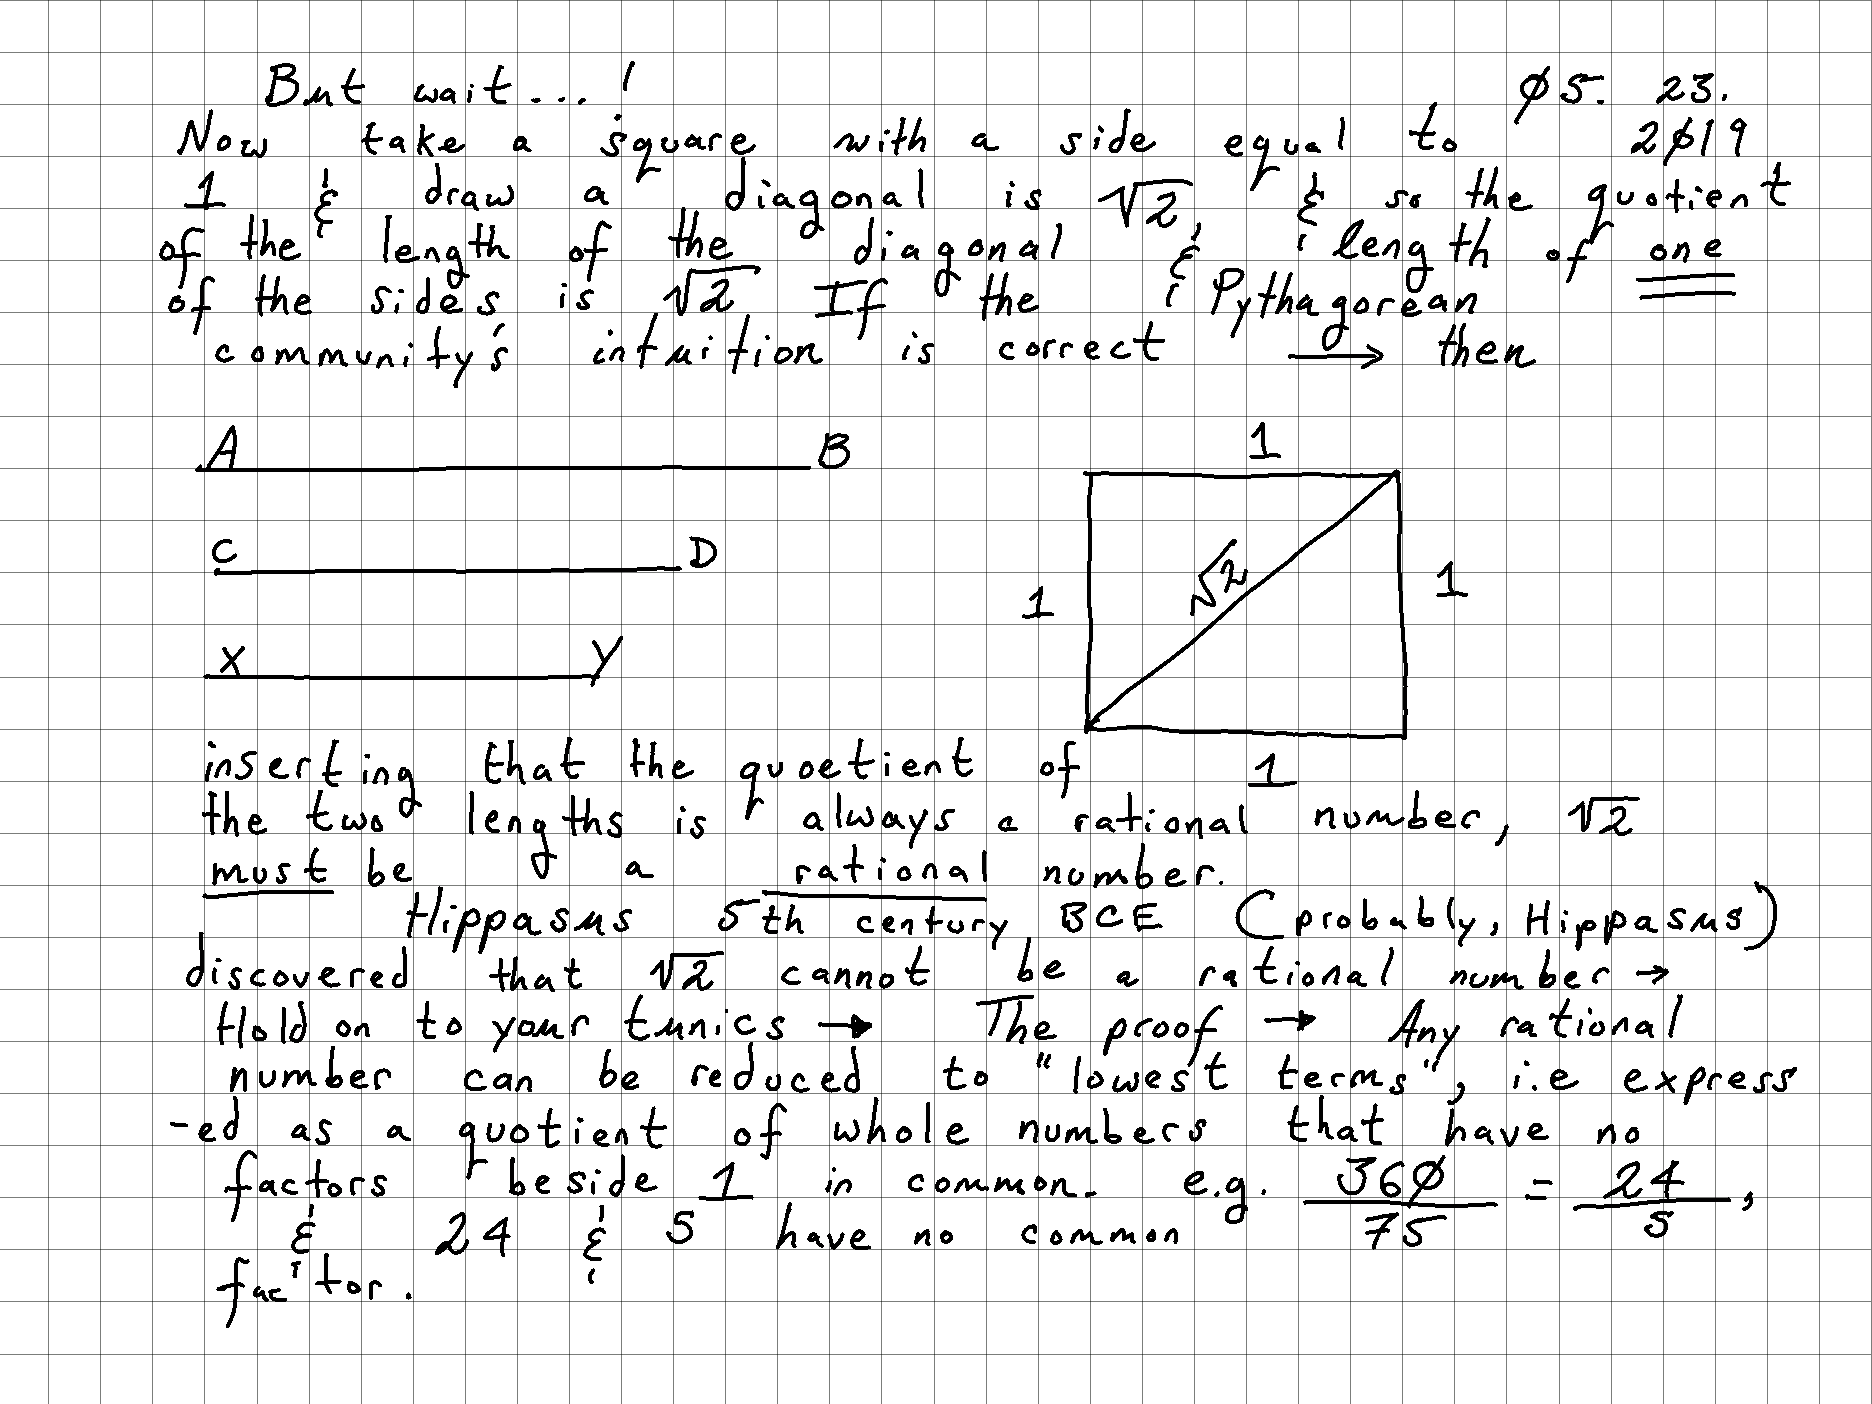 But wait...! Ø5. 23.
Now take a square with a side equal to 2Ø19
1 & draw a diagonal is √2, & so the quotient
of the length of the diagonal & length of one
of the sides is √2 If the Pythagorean
community's intuition is correct → then
A B
1
C D
√2
1 1
X Y
inserting that the quoetient of 1
the two lengths is always a rational number, √2
must be a rational number.
Hippasus 5th century BCE (probably, Hippasus)
discovered that √2 cannot be a rational number →
Hold on to your tunics → The proof → Any rational
number can be reduced to "lowest terms", i.e express
-ed as a quotient of whole numbers that have no
factors beside 1 in common. e.g. 36Ø/75 = 24/5,
& 24 & 5 have no common
factor.